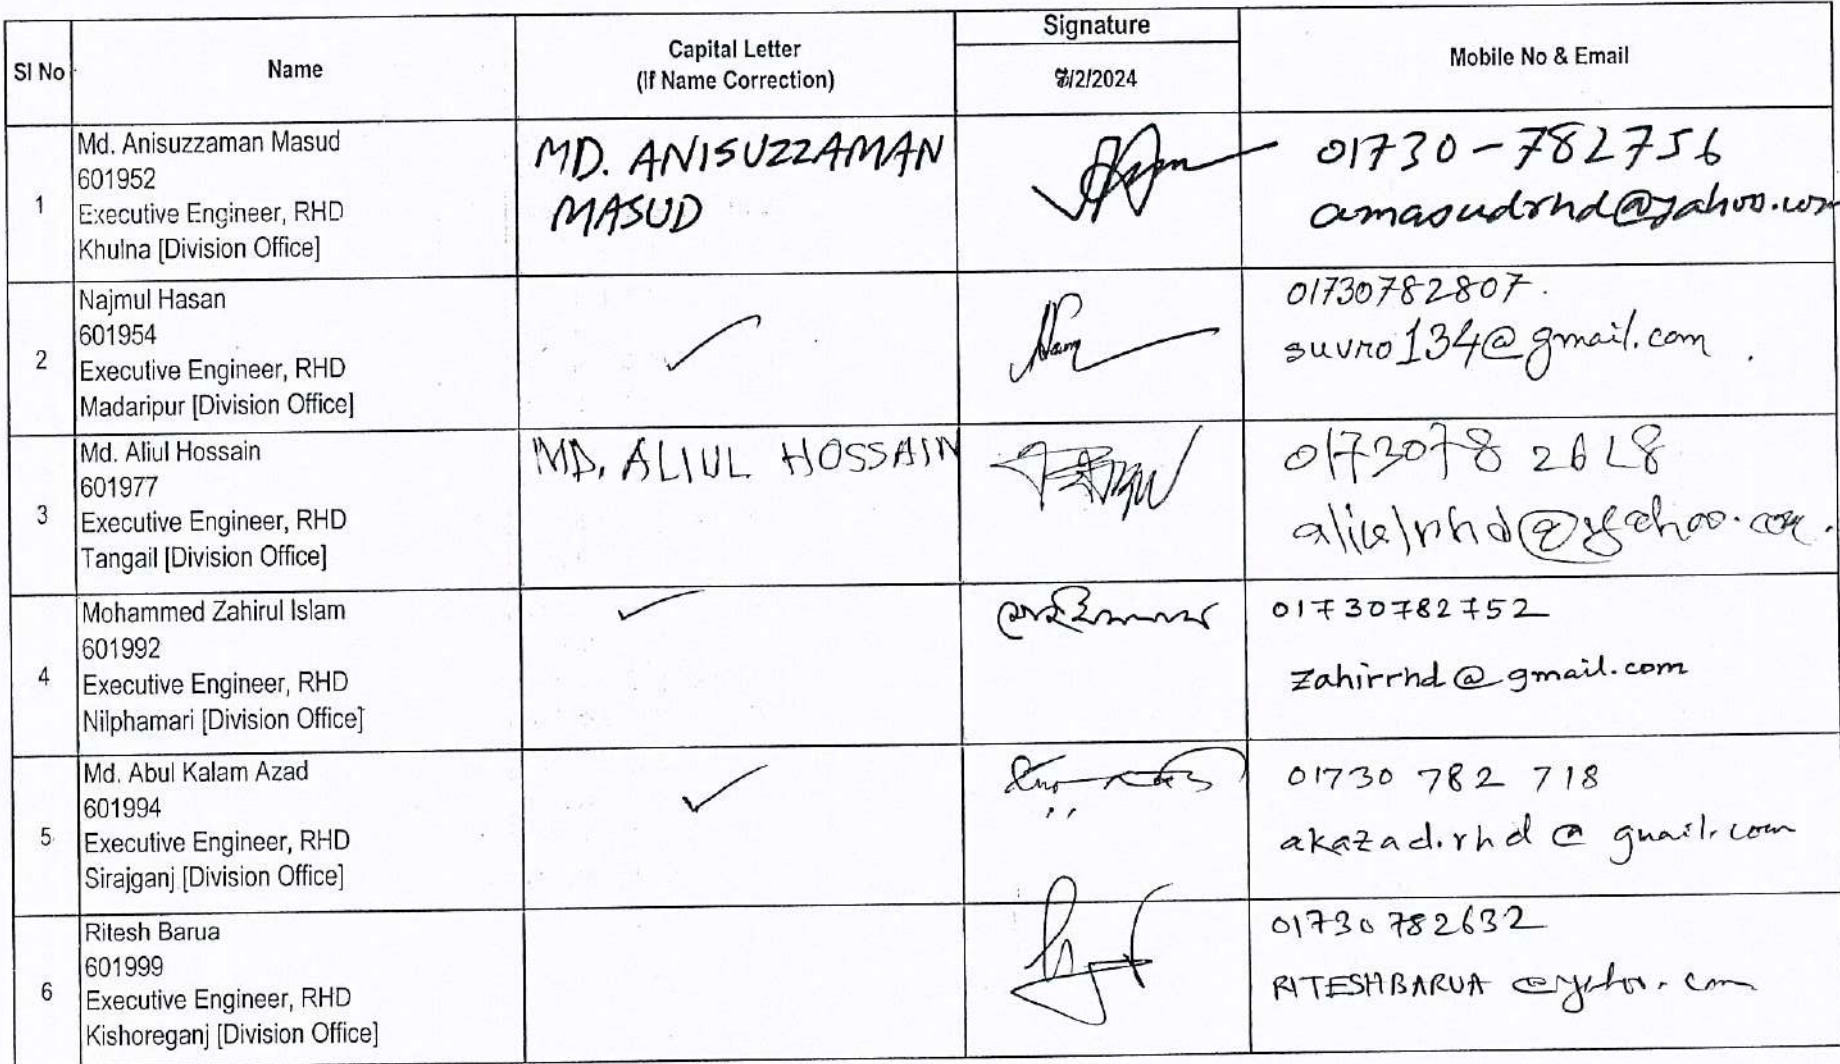 Sl No
Name
Capital Letter
(If Name Correction)
Signature
/2/2024
Mobile No & Email
1
Md. Anisuzzaman Masud
601952
Executive Engineer, RHD
Khulna [Division Office]
MD. ANISUZZAMAN
MASUD
01730-782756
amasudrhd@yahoo.com
2
Najmul Hasan
601954
Executive Engineer, RHD
Madaripur [Division Office]
01730782807.
suvro134@gmail.com
3
Md. Aliul Hossain
601977
Executive Engineer, RHD
Tangail [Division Office]
MD. ALIUL HOSSAIN
4
Mohammed Zahirul Islam
601992
Executive Engineer, RHD
Nilphamari [Division Office]
01730782752
zahirrhd@gmail.com
5
Md. Abul Kalam Azad
601994
Executive Engineer, RHD
Sirajganj [Division Office]
01730 782 718
akazad.rhd@gmail.com
6
Ritesh Barua
601999
Executive Engineer, RHD
Kishoreganj [Division Office]
01730 782632
RITESHBARUA @yahoo.com